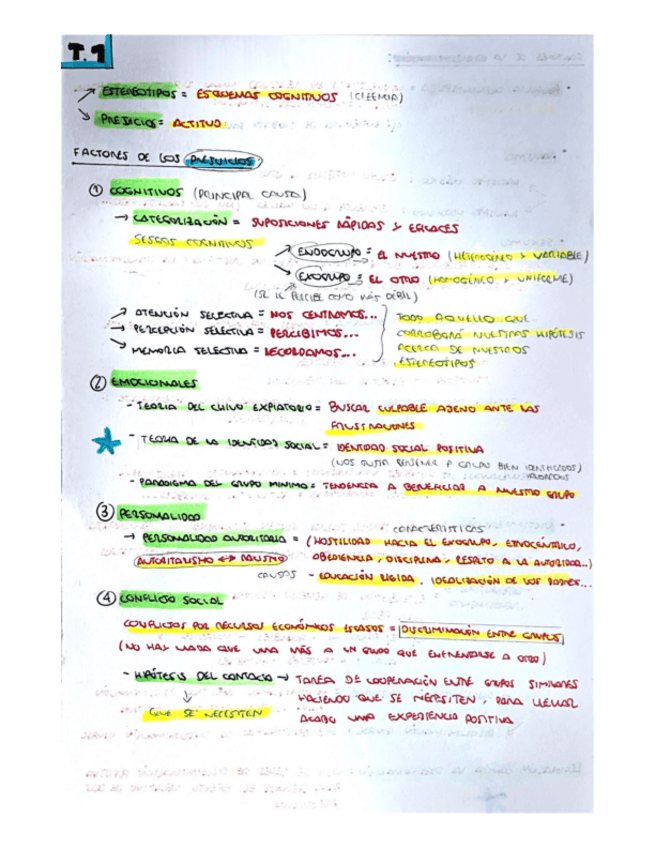 T.1
→ ESTEREOTIPOS = ESQUEMAS COGNITIVOS (CREENCIA)
→ PREJUICIOS = ACTITUD
FACTORES DE LOS PREJUICIOS
① COGNITIVOS (PRINCIPAL CAUSA)
→ CATEGORIZACIÓN = SUPOSICIONES RÁPIDAS Y EFICACES
SESGOS COGNITIVOS
→ ENDOGRUPO = EL NUESTRO (HETEROGÉNEO Y VARIABLE)
→ EXOGRUPO = EL OTRO (HOMOGÉNEO Y UNIFORME)
(SE LE PERCIBE COMO MÁS DÉBIL)
→ ATENCIÓN SELECTIVA = NOS CENTRAMOS... TODO AQUELLO QUE
→ PERCEPCIÓN SELECTIVA = PERCIBIMOS... CORROBORA NUESTRAS HIPÓTESIS
→ MEMORIA SELECTIVA = RECORDAMOS... ACERCA DE NUESTROS
ESTEREOTIPOS
② EMOCIONALES
- TEORIA DEL CHIVO EXPIATORIO = BUSCAR CULPABLE AJENO ANTE LAS
FRUSTRACIONES
- TEORIA DE LA IDENTIDAD SOCIAL = IDENTIDAD SOCIAL POSITIVA
(NOS GUSTA PERTENECER A GRUPOS BIEN IDENTIFICADOS)
VALORADOS
- PARADIGMA DEL GRUPO MINIMO = TENDENCIA A BENEFICIAR A NUESTRO GRUPO
③ PERSONALIDAD
CARACTERISTICAS
→ PERSONALIDAD AUTORITARIA = (HOSTILIDAD HACIA EL EXOGRUPO, ETNOCÉNTRICO,
AUTORITARISMO ↔ RACISMO OBEDIENCIA, DISCIPLINA, RESPETO A LA AUTORIDAD...)
CAUSAS - EDUCACIÓN RIGIDA, IDEALIZACIÓN DE LOS PADRES...
④ CONFLICTO SOCIAL
CONFLICTOS POR RECURSOS ECONÓMICOS ESCASOS = DISCRIMINACIÓN ENTRE GRUPOS
(NO HAY NADA QUE UNA MÁS A UN GRUPO QUE ENFRENTARSE A OTRO)
- HIPÓTESIS DEL CONTACTO → TAREA DE COOPERACIÓN ENTRE GRUPOS SIMILARES
HACIENDO QUE SE NECESITEN, PARA LLEVAR
QUE SE NECESITEN ACABO UNA EXPERIENCIA POSITIVA